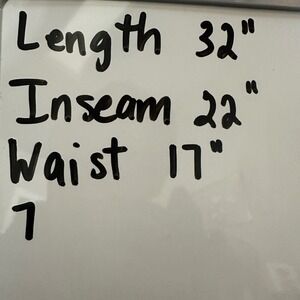 Length 32"
Inseam 22"
Waist 17"
7